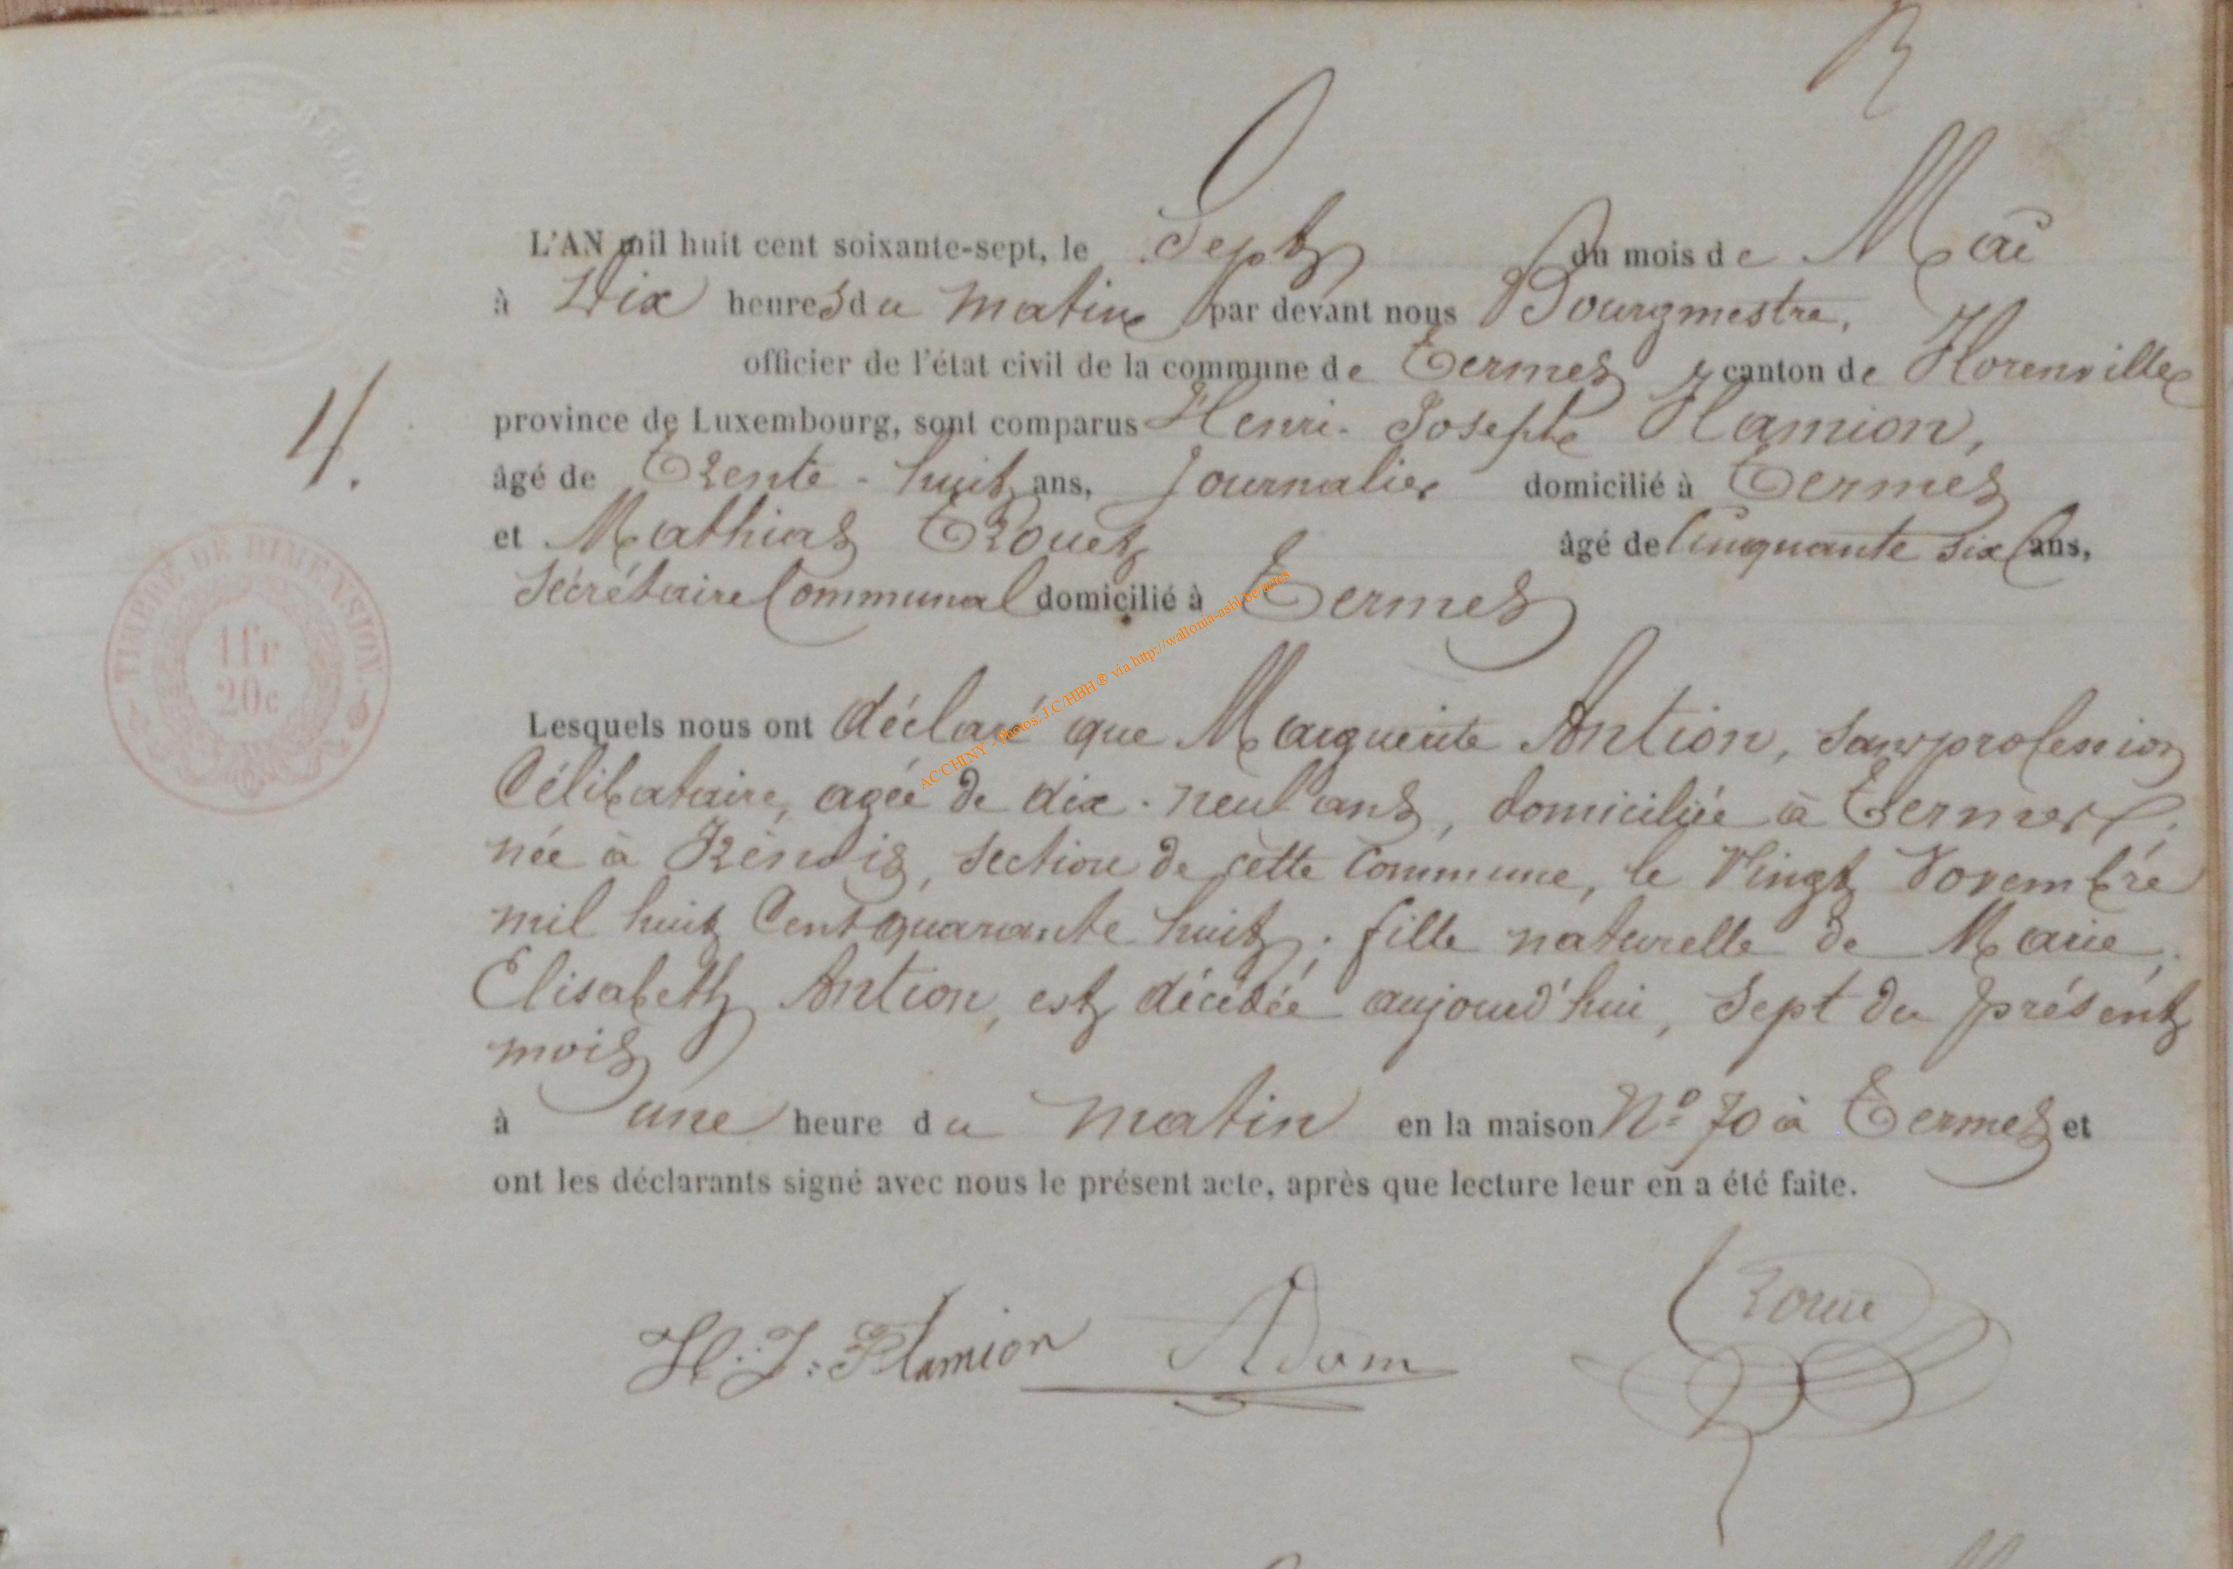 L'AN mil huit cent soixante-sept, le Sept du mois de Mai
à Dix heures du matin par devant nous Bourgmestre,
officier de l'état civil de la commune de Termes, canton de Florenville
province de Luxembourg, sont comparus Henri-Joseph Flamion,
âgé de Trente-huit ans, Journalier domicilié à Termes
4.
et Mathias Trouet âgé de Cinquante six ans,
Sécrétaire Communal domicilié à Termes
TIMBRE DE DIMENSION
1 fr
20 c
Lesquels nous ont déclaré que Marguerite Antion, sans profession
Célibataire, agée de dix-neuf ans, domiciliée à Termes,
née à , section de cette Commune, le Vingt Novembre
mil huit Cent quarante huit, fille naturelle de Marie,
Elisabeth Antion, est décédée aujourd'hui, Sept du présent
mois
à une heure du matin en la maison N° 70 à Termes et
ont les déclarants signé avec nous le présent acte, après que lecture leur en a été faite.
H. J. Flamion Adam
AC CHINY - Photos: J.C/HBH ® via http://wallonia-asbl.be/actes